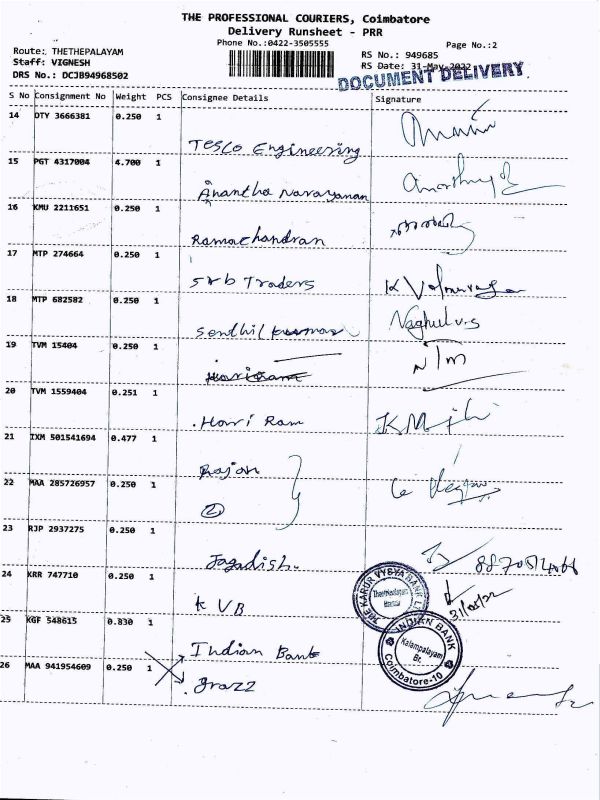 THE PROFESSIONAL COURIERS, Coimbatore
Delivery Runsheet - PRR
Phone No.:0422-3505555
Page No.:2
Route: THETHEPALAYAM
Staff: VIGNESH
DRS No.: DCJB94968502
RS No.: 949685
RS Date: 31-May-2022
DOCUMENT DELIVERY
S No Consignment No Weight PCS Consignee Details Signature
14 DTY 3666381 0.250 1
Tesco Engineering
15 PGT 4317004 4.700 1
Anantha Narayanan
16 KMU 2211651 0.250 1
Ramachandran
17 MTP 274664 0.250 1
Srb Traders
18 MTP 682582 0.250 1
Senthil kumar Naghul v.s
19 TVM 15404 0.250 1
N/m
20 TVM 1559404 0.251 1
Hari Ram
21 IXM 501541694 0.477 1
Rajan
22 MAA 285726957 0.250 1
2
23 RJP 2937275 0.250 1
Jagadish.
24 KRR 747710 0.250 1
K VB
THE KARUR VYSYA BANK LTD
31/05/22
25 KGF 548615 0.830 1
Indian Bank
INDIAN BANK
Kalampalayam
Br.
Coimbatore-10
26 MAA 941954609 0.250 1
Grazz